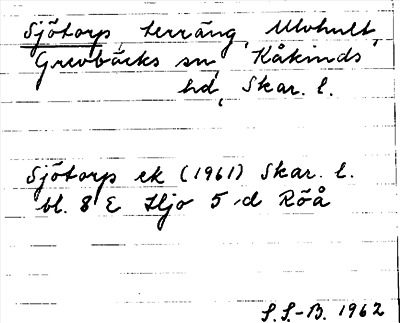 Sjötorp, terräng, Ulvhult,
Grevbäcks sn, Kåkinds
hd, Skar. l.
Sjötorp ek (1961) Skar. l.
bl. 8 E Hjo 5 d Röå
S. S.-B. 1962